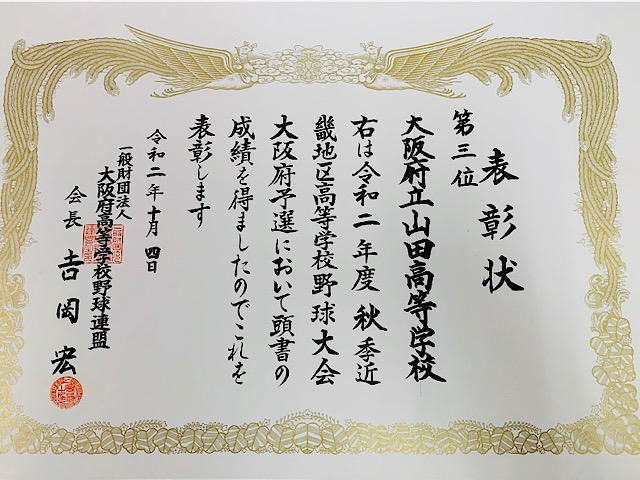 表彰状
第三位
大阪府立山田高等学校
右は令和二年度秋季近
畿地区高等学校野球大会
大阪府予選において頭書の
成績を得ましたのでこれを
表彰します
令和二年十月四日
一般財団法人
大阪府高等学校野球連盟
会長 吉岡宏